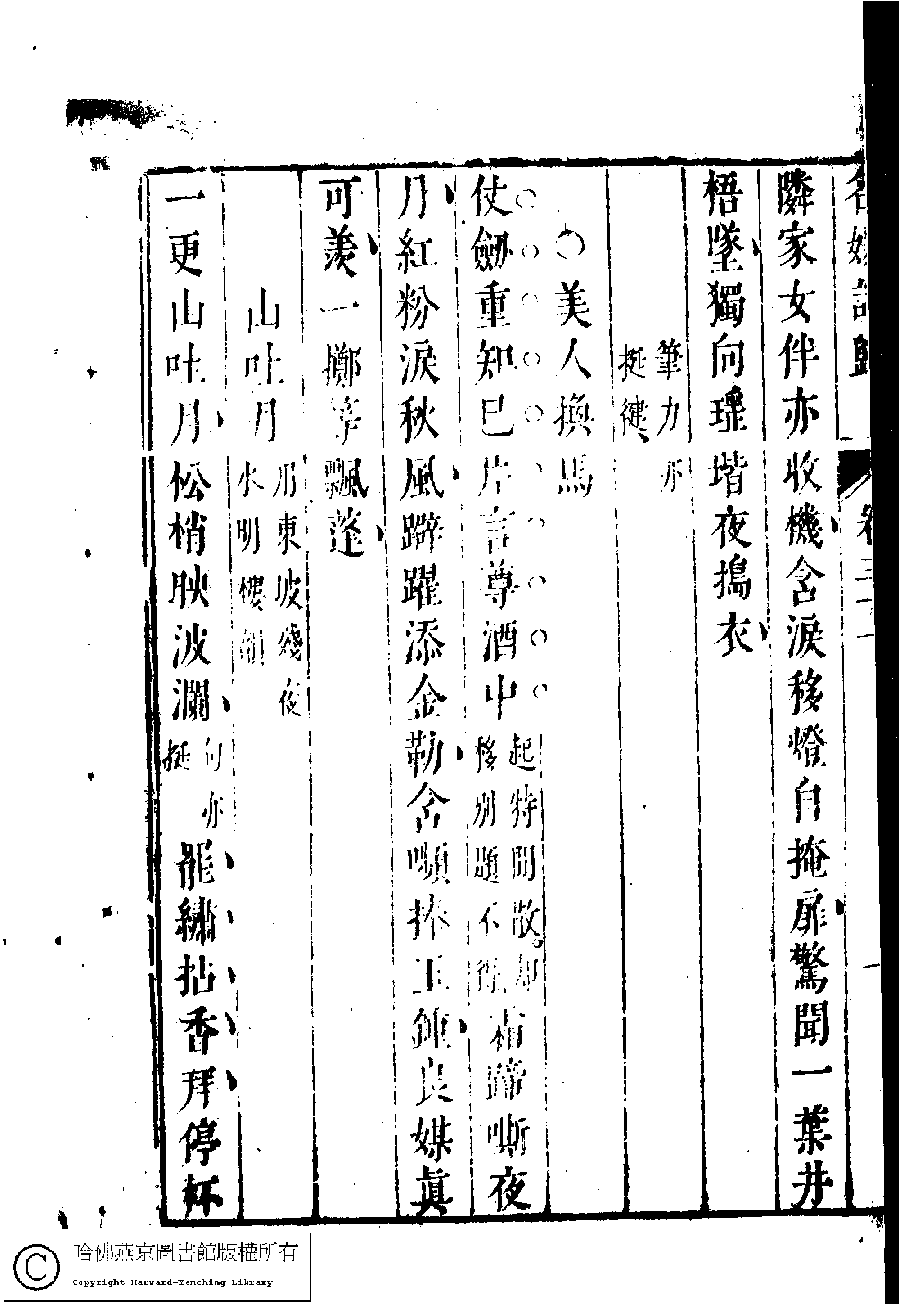 名媛詩歸 卷三十一
隣家女伴亦收機含淚移燈自掩扉驚聞一葉井
梧墜獨向瑤堦夜搗衣
筆力亦
挺健
○美人換馬
仗劒重知已片言尊酒中
起特閒散却
移別題不得
霜蹄嘶夜
月紅粉淚秋風躃躍添金勒含嚬捧玉鍾良媒眞
可羨一擲等飄蓬
山吐月
用東坡殘夜
水明樓韻
一更山吐月松梢映波瀾
句亦
挺
龍繡拈香拜停杯
哈佛燕京圖書館版權所有
Copyright Harvard-Yenching Library